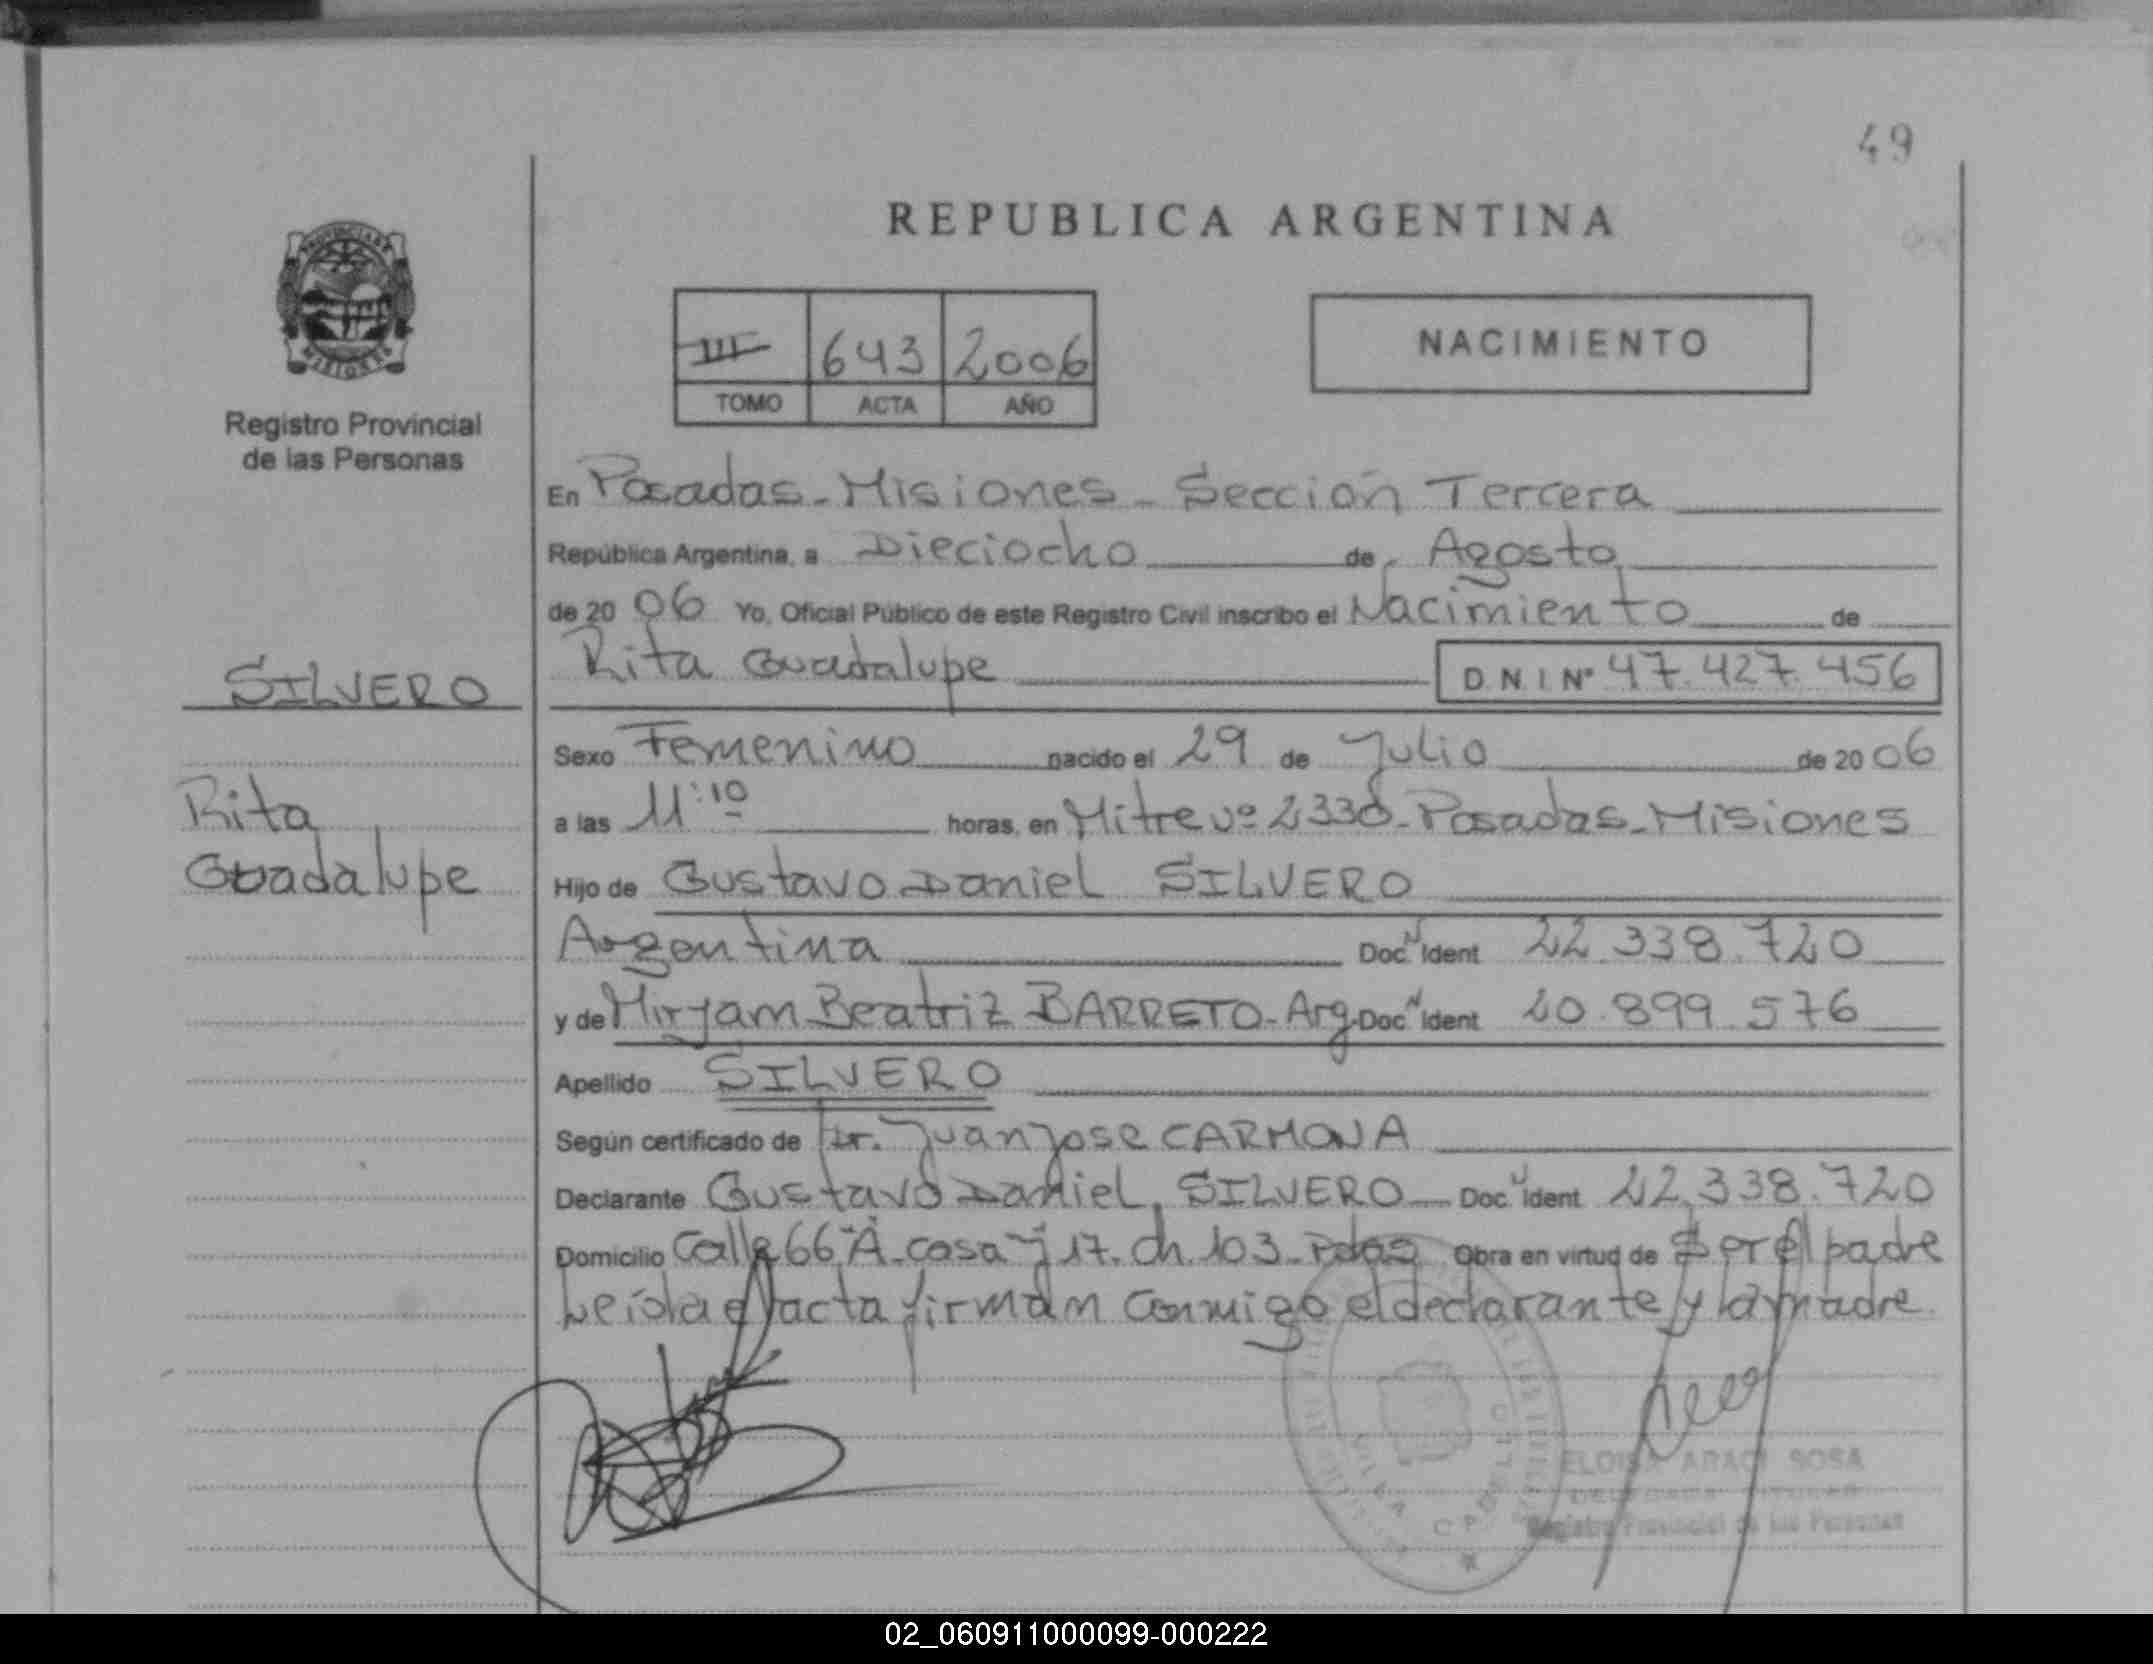 49
REPUBLICA ARGENTINA
PROVINCIA DE
MISIONES
Registro Provincial
de las Personas
III 643 2006
TOMO ACTA AÑO
NACIMIENTO
En Posadas - Misiones - Sección Tercera
República Argentina, a Dieciocho de Agosto
de 20 06 Yo, Oficial Público de este Registro Civil inscribo el Nacimiento de
Rita Guadalupe D.N.I Nº 47.427.456
SILVERO
Rita
Guadalupe
Sexo Femenino nacido el 29 de Julio de 20 06
a las 11:10 horas, en Mitre Nº 2338 - Posadas - Misiones
Hijo de Gustavo Daniel SILVERO
Argentina Doc. Ident 22.338.720
y de Miryam Beatriz BARRETO - Arg. Doc. Ident 20.899.576
Apellido SILVERO
Según certificado de Dr. Juan Jose CARMONA
Declarante Gustavo Daniel SILVERO Doc. Ident 22.338.720
Domicilio Calle 66 "A" casa 17. ch. 103 - Pdas Obra en virtud de Ser el padre
Leída el acta firman conmigo el declarante y la madre
ELOISA ARACI SOSA
Registro Provincial de las Personas
02_060911000099-000222